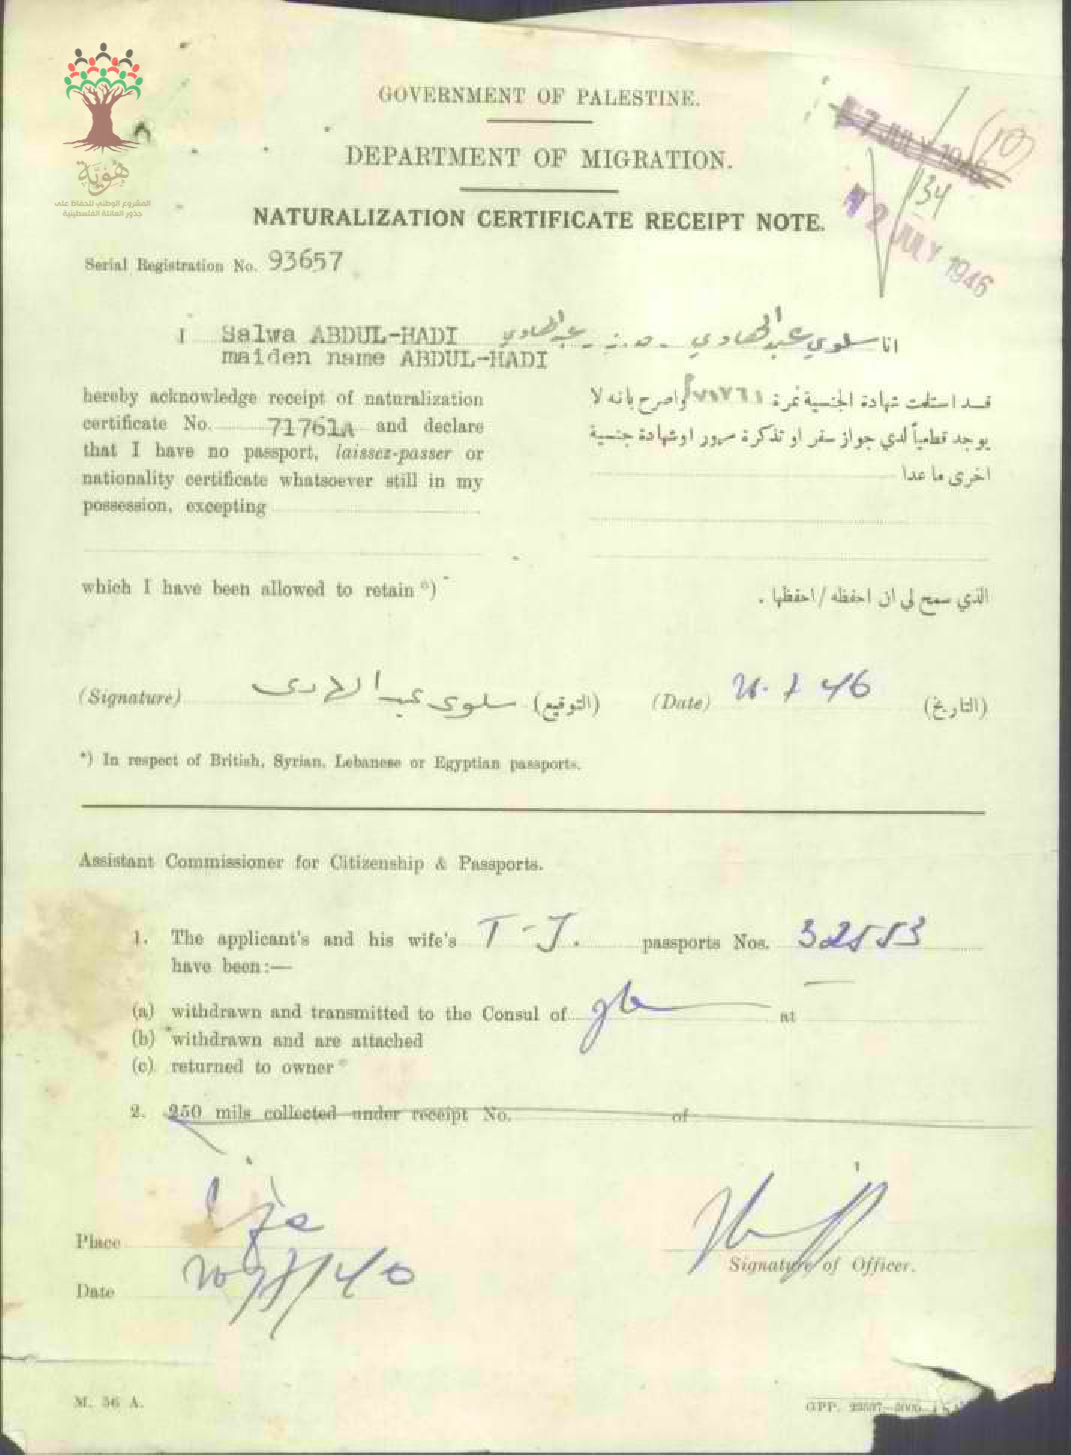 هوية
المشروع الوطني للحفاظ على
جذور العائلة الفلسطينية
GOVERNMENT OF PALESTINE.
DEPARTMENT OF MIGRATION.
7 JULY 1946
(10)
134
2 JULY 1946
NATURALIZATION CERTIFICATE RECEIPT NOTE.
Serial Registration No. 93657
I Salwa ABDUL-HADI
maiden name ABDUL-HADI
انا سلوي عبد الهادي عبد الهادي
hereby acknowledge receipt of naturalization
certificate No. 71761A and declare
that I have no passport, laissez-passer or
nationality certificate whatsoever still in my
possession, excepting
قد استلمت شهادة الجنسية نمرة ٧١٧٦١ واصرح بانه لا
يوجد قطعياً لدي جواز سفر او تذكرة مرور او شهادة جنسية
اخرى ما عدا
which I have been allowed to retain *)
الذي سمح لي ان احفظه / احفظها .
(Signature) سلوى عبد الهادى (التوقيع) (Date) 46 (التاريخ)
*) In respect of British, Syrian, Lebanese or Egyptian passports.
Assistant Commissioner for Citizenship & Passports.
1. The applicant's and his wife's T-J. passports Nos. 32553
have been:—
(a) withdrawn and transmitted to the Consul of at
(b) *withdrawn and are attached
(c) returned to owner*
2. 250 mils collected under receipt No. of
Place
Date
Signature of Officer.
M. 56 A.
GPP.